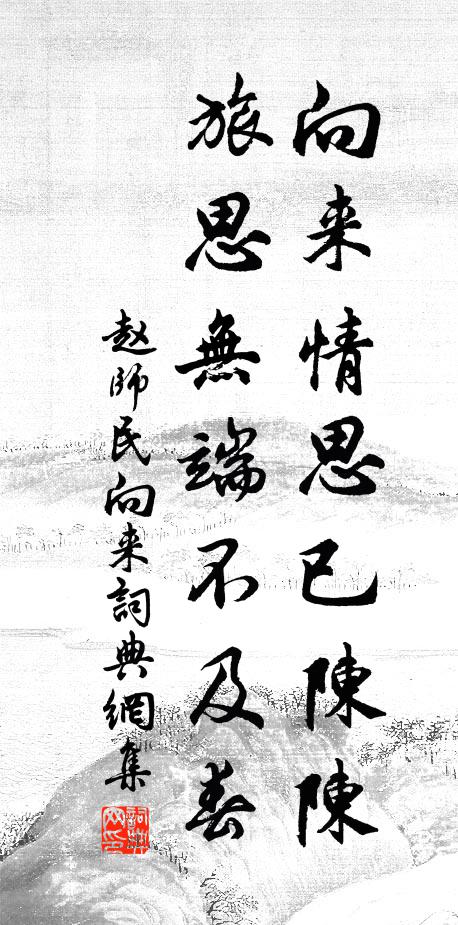 向来情思已陳陳
旅思無端不及春
赵師民向来詞典網集